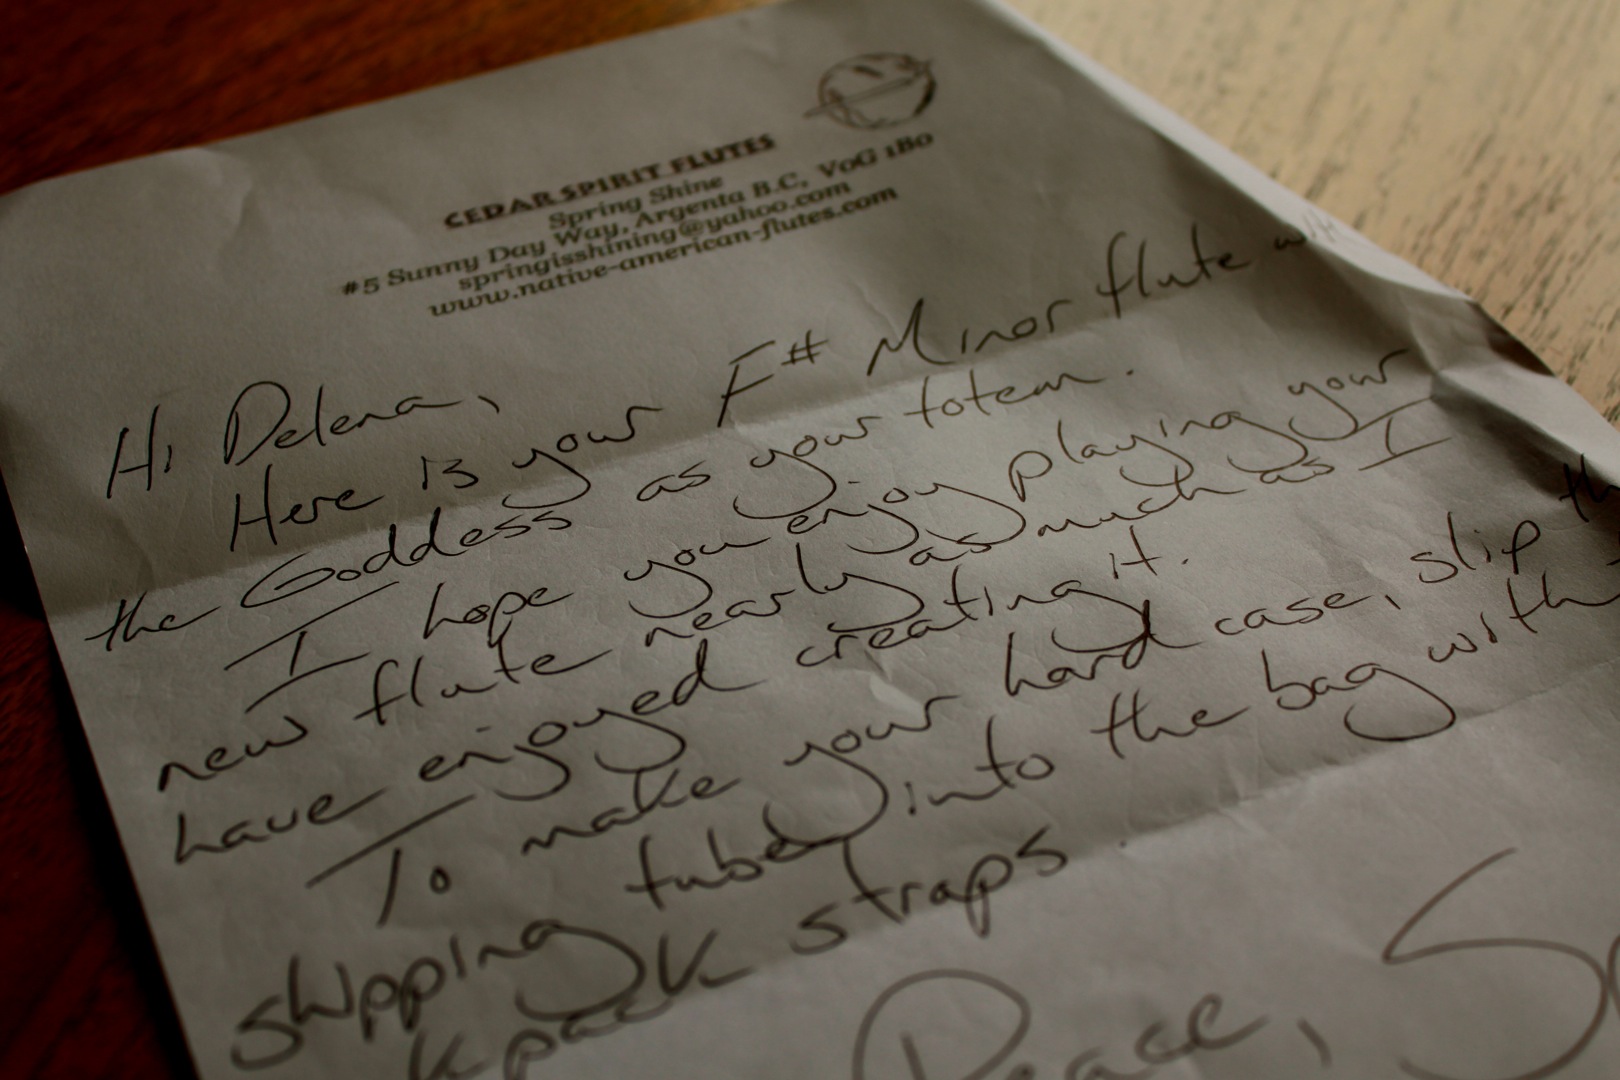 CEDAR SPIRIT FLUTES
Spring Shine
#5 Sunny Day Way, Argenta B.C, V0G 1B0
springisshining@yahoo.com
www.native-american-flutes.com
Hi Delena,
Here is your F# Minor flute with
the Goddess as your totem.
I hope you enjoy playing your
new flute nearly as much as I
have enjoyed creating it.
To make your hard case, slip the
shipping tube into the bag with
kpack straps.
Peace,